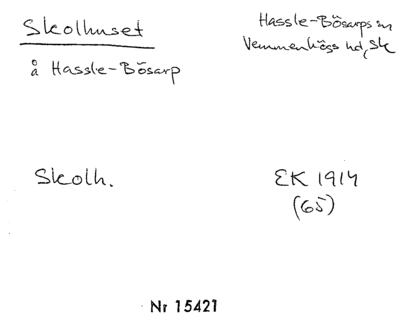 Skolhuset
å Hassle-Bösarp
Hassle-Bösarps sn
Vemmenhögs hd, Sk
Skolh.
EK 1914
(65)
Nr 15421